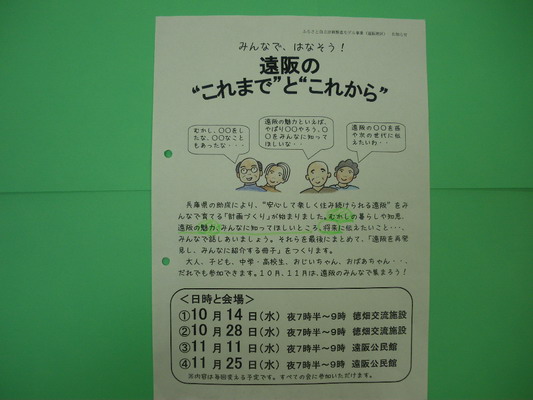 みんなで、はなそう！
遠阪の
“これまで”と“これから”
むかし、〇〇をし
たな、〇〇なこと
もあったな・・・
遠阪の魅力といえば、
やぱり〇〇やろう。〇
〇をみんなに知って
ほしいな・・
遠阪の〇〇を孫
や次の世代に伝
えたいわ・・
兵庫県の助成により、“安心して楽しく住み続けられる遠阪”をみ
んなで育てる「計画づくり」が始まりました。むかしの暮らしや知恵、
遠阪の魅力、みんなに知ってほしいところ、将来に伝えたいこと・・・、
みんなで話しあいましょう。それらを最後にまとめて、「遠阪を再発
見し、みんなに紹介する冊子」をつくります。
大人、子ども、中学・高校生、おじいちゃん、おばあちゃん・・、
だれでも参加できます。10月、11月は、遠阪のみんなで集まろう！
＜日時と会場＞
①10月14日（水）夜7時半～9時 徳畑交流施設
②10月28日（水）夜7時半～9時 徳畑交流施設
③11月11日（水）夜7時半～9時 遠阪公民館
④11月25日（水）夜7時半～9時 遠阪公民館
※内容は毎回変える予定です。すべての会に参加いただけます。